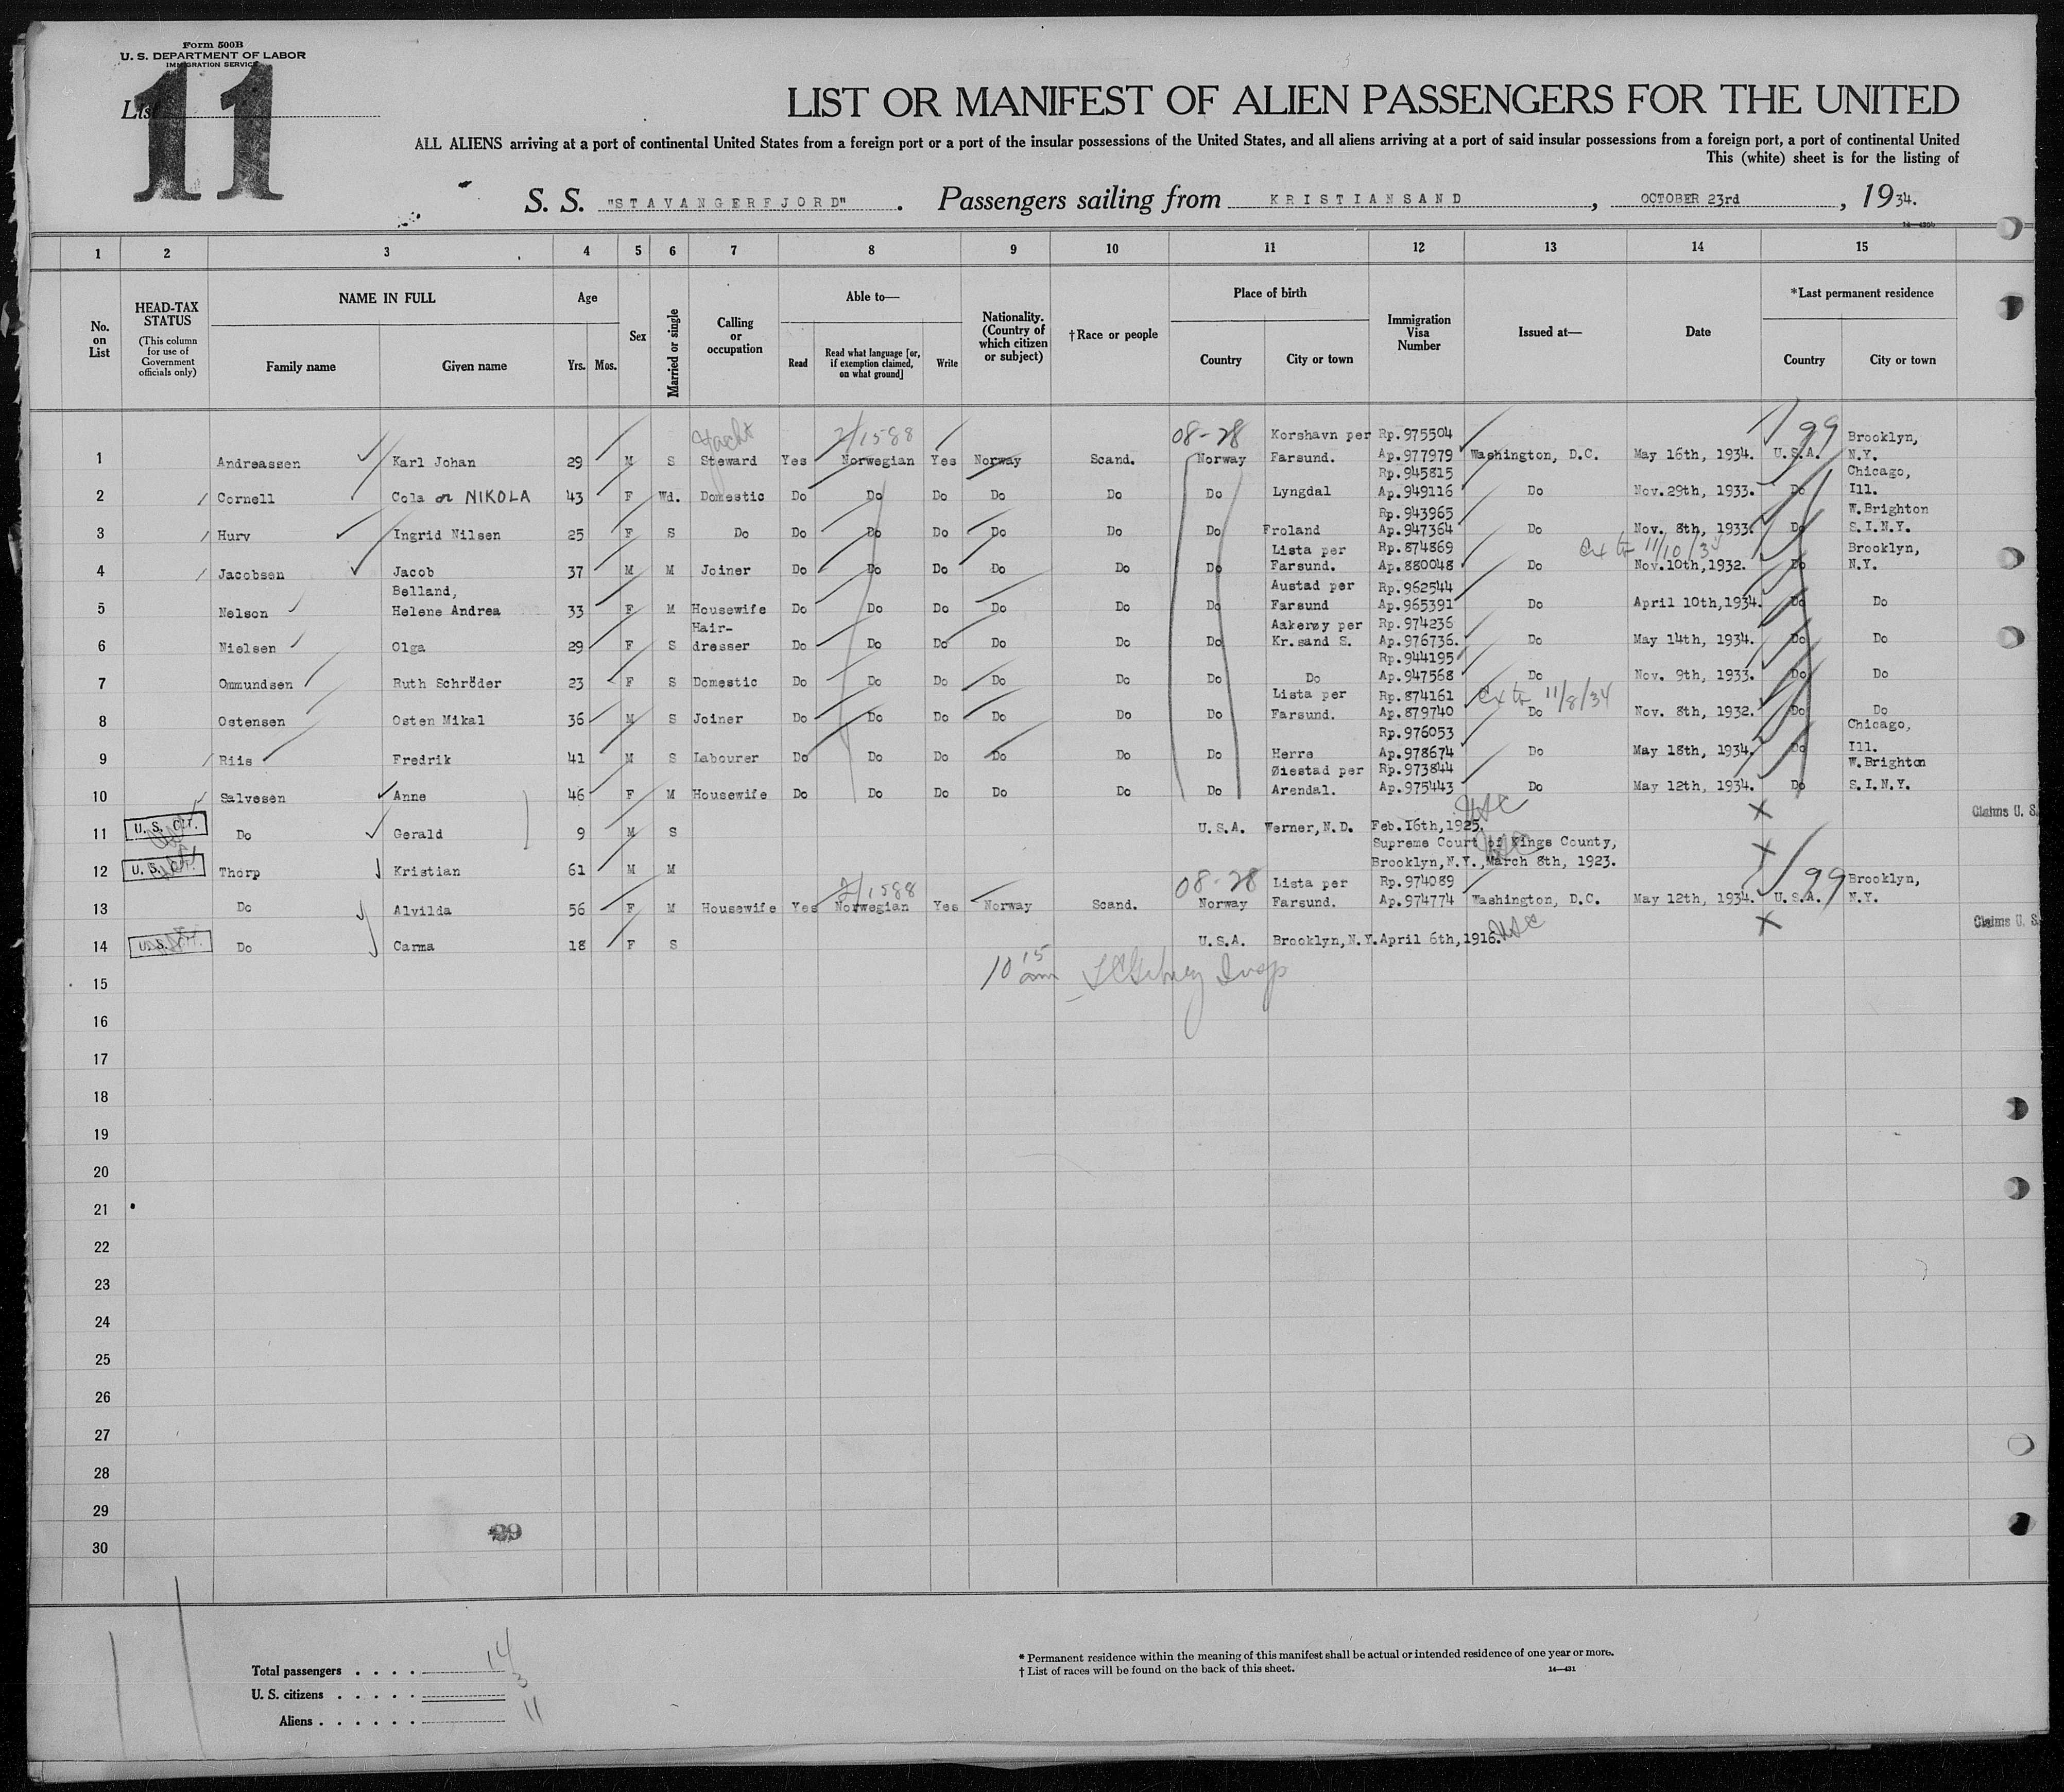 Form 500B
U. S. DEPARTMENT OF LABOR
IMMIGRATION SERVICE
List
11
LIST OR MANIFEST OF ALIEN PASSENGERS FOR THE UNITED
ALL ALIENS arriving at a port of continental United States from a foreign port or a port of the insular possessions of the United States, and all aliens arriving at a port of said insular possessions from a foreign port, a port of continental United
This (white) sheet is for the listing of
S. S. "STAVANGERFJORD". Passengers sailing from KRISTIANSAND, OCTOBER 23rd, 1934.
1 2 3 4 5 6 7 8 9 10 11 12 13 14 15
No. on List
HEAD-TAX STATUS
(This column for use of Government officials only)
NAME IN FULL
Family name Given name
Age
Yrs. Mos.
Sex
Married or single
Calling or occupation
Able to—
Read
Read what language [or, if exemption claimed, on what ground]
Write
Nationality. (Country of which citizen or subject)
†Race or people
Place of birth
Country City or town
Immigration Visa Number
Issued at—
Date
*Last permanent residence
Country City or town
Yacht 2/1588 08-28 Korshavn per Rp.975504 199 Brooklyn,
1 Andreassen Karl Johan 29 M S Steward Yes Norwegian Yes Norway Scand. Norway Farsund. Ap.977979 Washington, D.C. May 16th, 1934. U.S.A. N.Y.
Rp.945815 Chicago,
2 Cornell Cola or NIKOLA 43 F Wd. Domestic Do Do Do Do Do Do Lyngdal Ap.949116 Do Nov.29th, 1933. Do Ill.
Rp.943965 W.Brighton
3 Hurv Ingrid Nilsen 25 F S Do Do Do Do Do Do Do Froland Ap.947364 Do Nov. 8th, 1933. Do S.I.N.Y.
Lista per Rp.874869 Ex to 11/10/34 Brooklyn,
4 Jacobsen Jacob 37 M M Joiner Do Do Do Do Do Do Farsund. Ap.880048 Do Nov.10th,1932. Do N.Y.
Belland, Austad per Rp.962544
5 Nelson Helene Andrea 33 F M Housewife Do Do Do Do Do Do Farsund Ap.965391 Do April 10th,1934. Do Do
Hair- Aakerøy per Rp.974236
6 Nielsen Olga 29 F S dresser Do Do Do Do Do Do Kr.sand S. Ap.976736. Do May 14th, 1934. Do Do
Rp.944195
7 Ommundsen Ruth Schröder 23 F S Domestic Do Do Do Do Do Do Do Ap.947568 Do Nov. 9th, 1933. Do Do
Lista per Rp.874161 Ex to 11/8/34
8 Ostensen Osten Mikal 36 M S Joiner Do Do Do Do Do Do Farsund. Ap.879740 Do Nov. 8th, 1932. Do Do
Rp.976053 Chicago,
9 Riis Fredrik 41 M S Labourer Do Do Do Do Do Do Herre Ap.978674 Do May 18th, 1934. Do Ill.
Øiestad per Rp.973844 W.Brighton
10 Salvesen Anne 46 F M Housewife Do Do Do Do Do Do Arendal. Ap.975443 Do May 12th, 1934. Do S.I.N.Y.
11 U. S. CIT. Do Gerald 9 M S U.S.A. Werner, N.D. Feb.16th,1925. Claims U. S.
Supreme Court of Kings County,
12 U. S. CIT. Thorp Kristian 61 M M Brooklyn,N.Y.,March 8th, 1923.
2/1588 08-28 Lista per Rp.974089 199 Brooklyn,
13 Do Alvilda 56 F M Housewife Yes Norwegian Yes Norway Scand. Norway Farsund. Ap.974774 Washington, D.C. May 12th, 1934. U.S.A. N.Y.
14 U.S. CIT. Do Carma 18 F S U.S.A. Brooklyn,N.Y. April 6th,1916. Claims U. S.
15 10 15 am Insp
16
17
18
19
20
21
22
23
24
25
26
27
28
29
30
Total passengers . . . . 14
U. S. citizens . . . . . 3
Aliens . . . . . . 11
* Permanent residence within the meaning of this manifest shall be actual or intended residence of one year or more.
† List of races will be found on the back of this sheet.
14—431